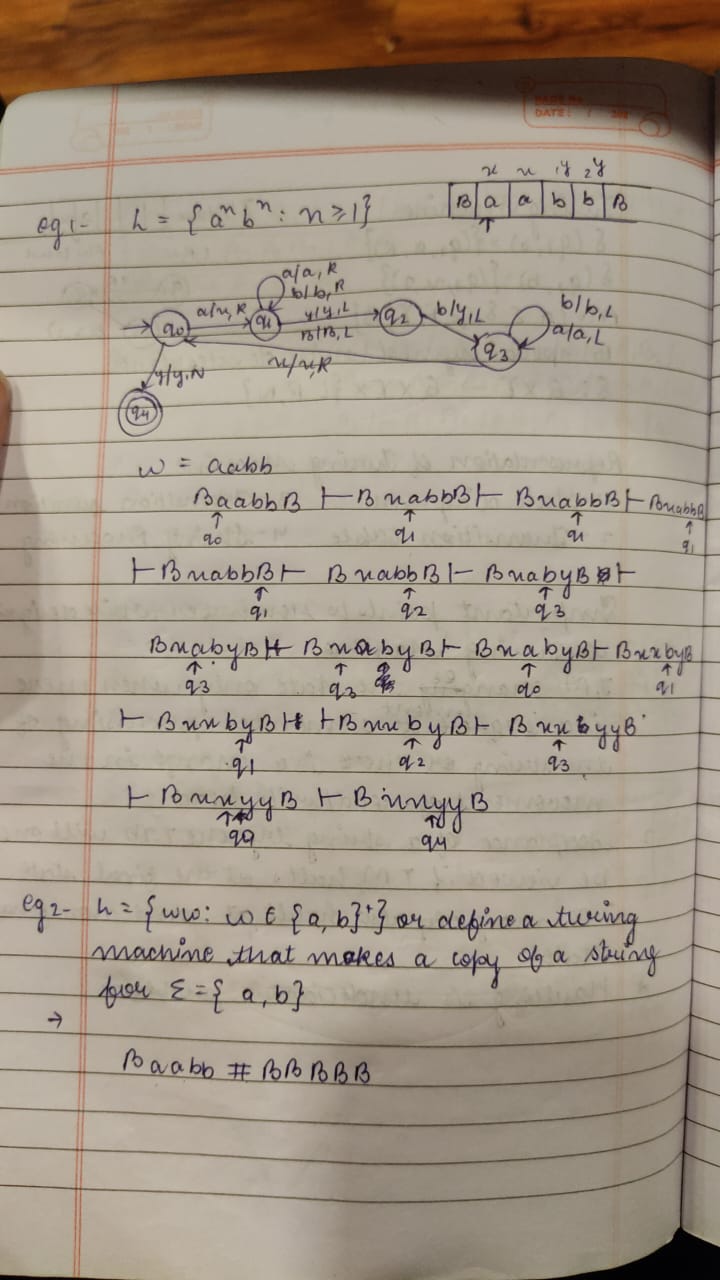 DATE:
x x 1y 2y
eg1- L = {aⁿbⁿ : n ≥ 1} B a a b b B
a/a, R
b/b, R
q0 a/x, R q1 y/y, L B/B, L q2 b/y, L q3 b/b, L a/a, L
x/x, R
y/y, N
q4
w = aabb
BaabbB ⊢ BxabbB ⊢ BxabbB ⊢ BxabbB
q0 q1 q1 q1
⊢ BxabbB ⊢ BxabbB ⊢ BxabyB ⊢
q1 q2 q3
BxabyB ⊢ BxabyB ⊢ BxabyB ⊢ BxxbyB
q3 q3 q0 q1
⊢ BxxbyB ⊢ BxxbyB ⊢ BxxyyB
q1 q2 q3
⊢ BxxyyB ⊢ BxxyyB
q0 q4
eg2- L = {ww : w ∈ {a, b}⁺} or define a turing
machine that makes a copy of a string
for Σ = {a, b}
→
Baabb # BBBBB